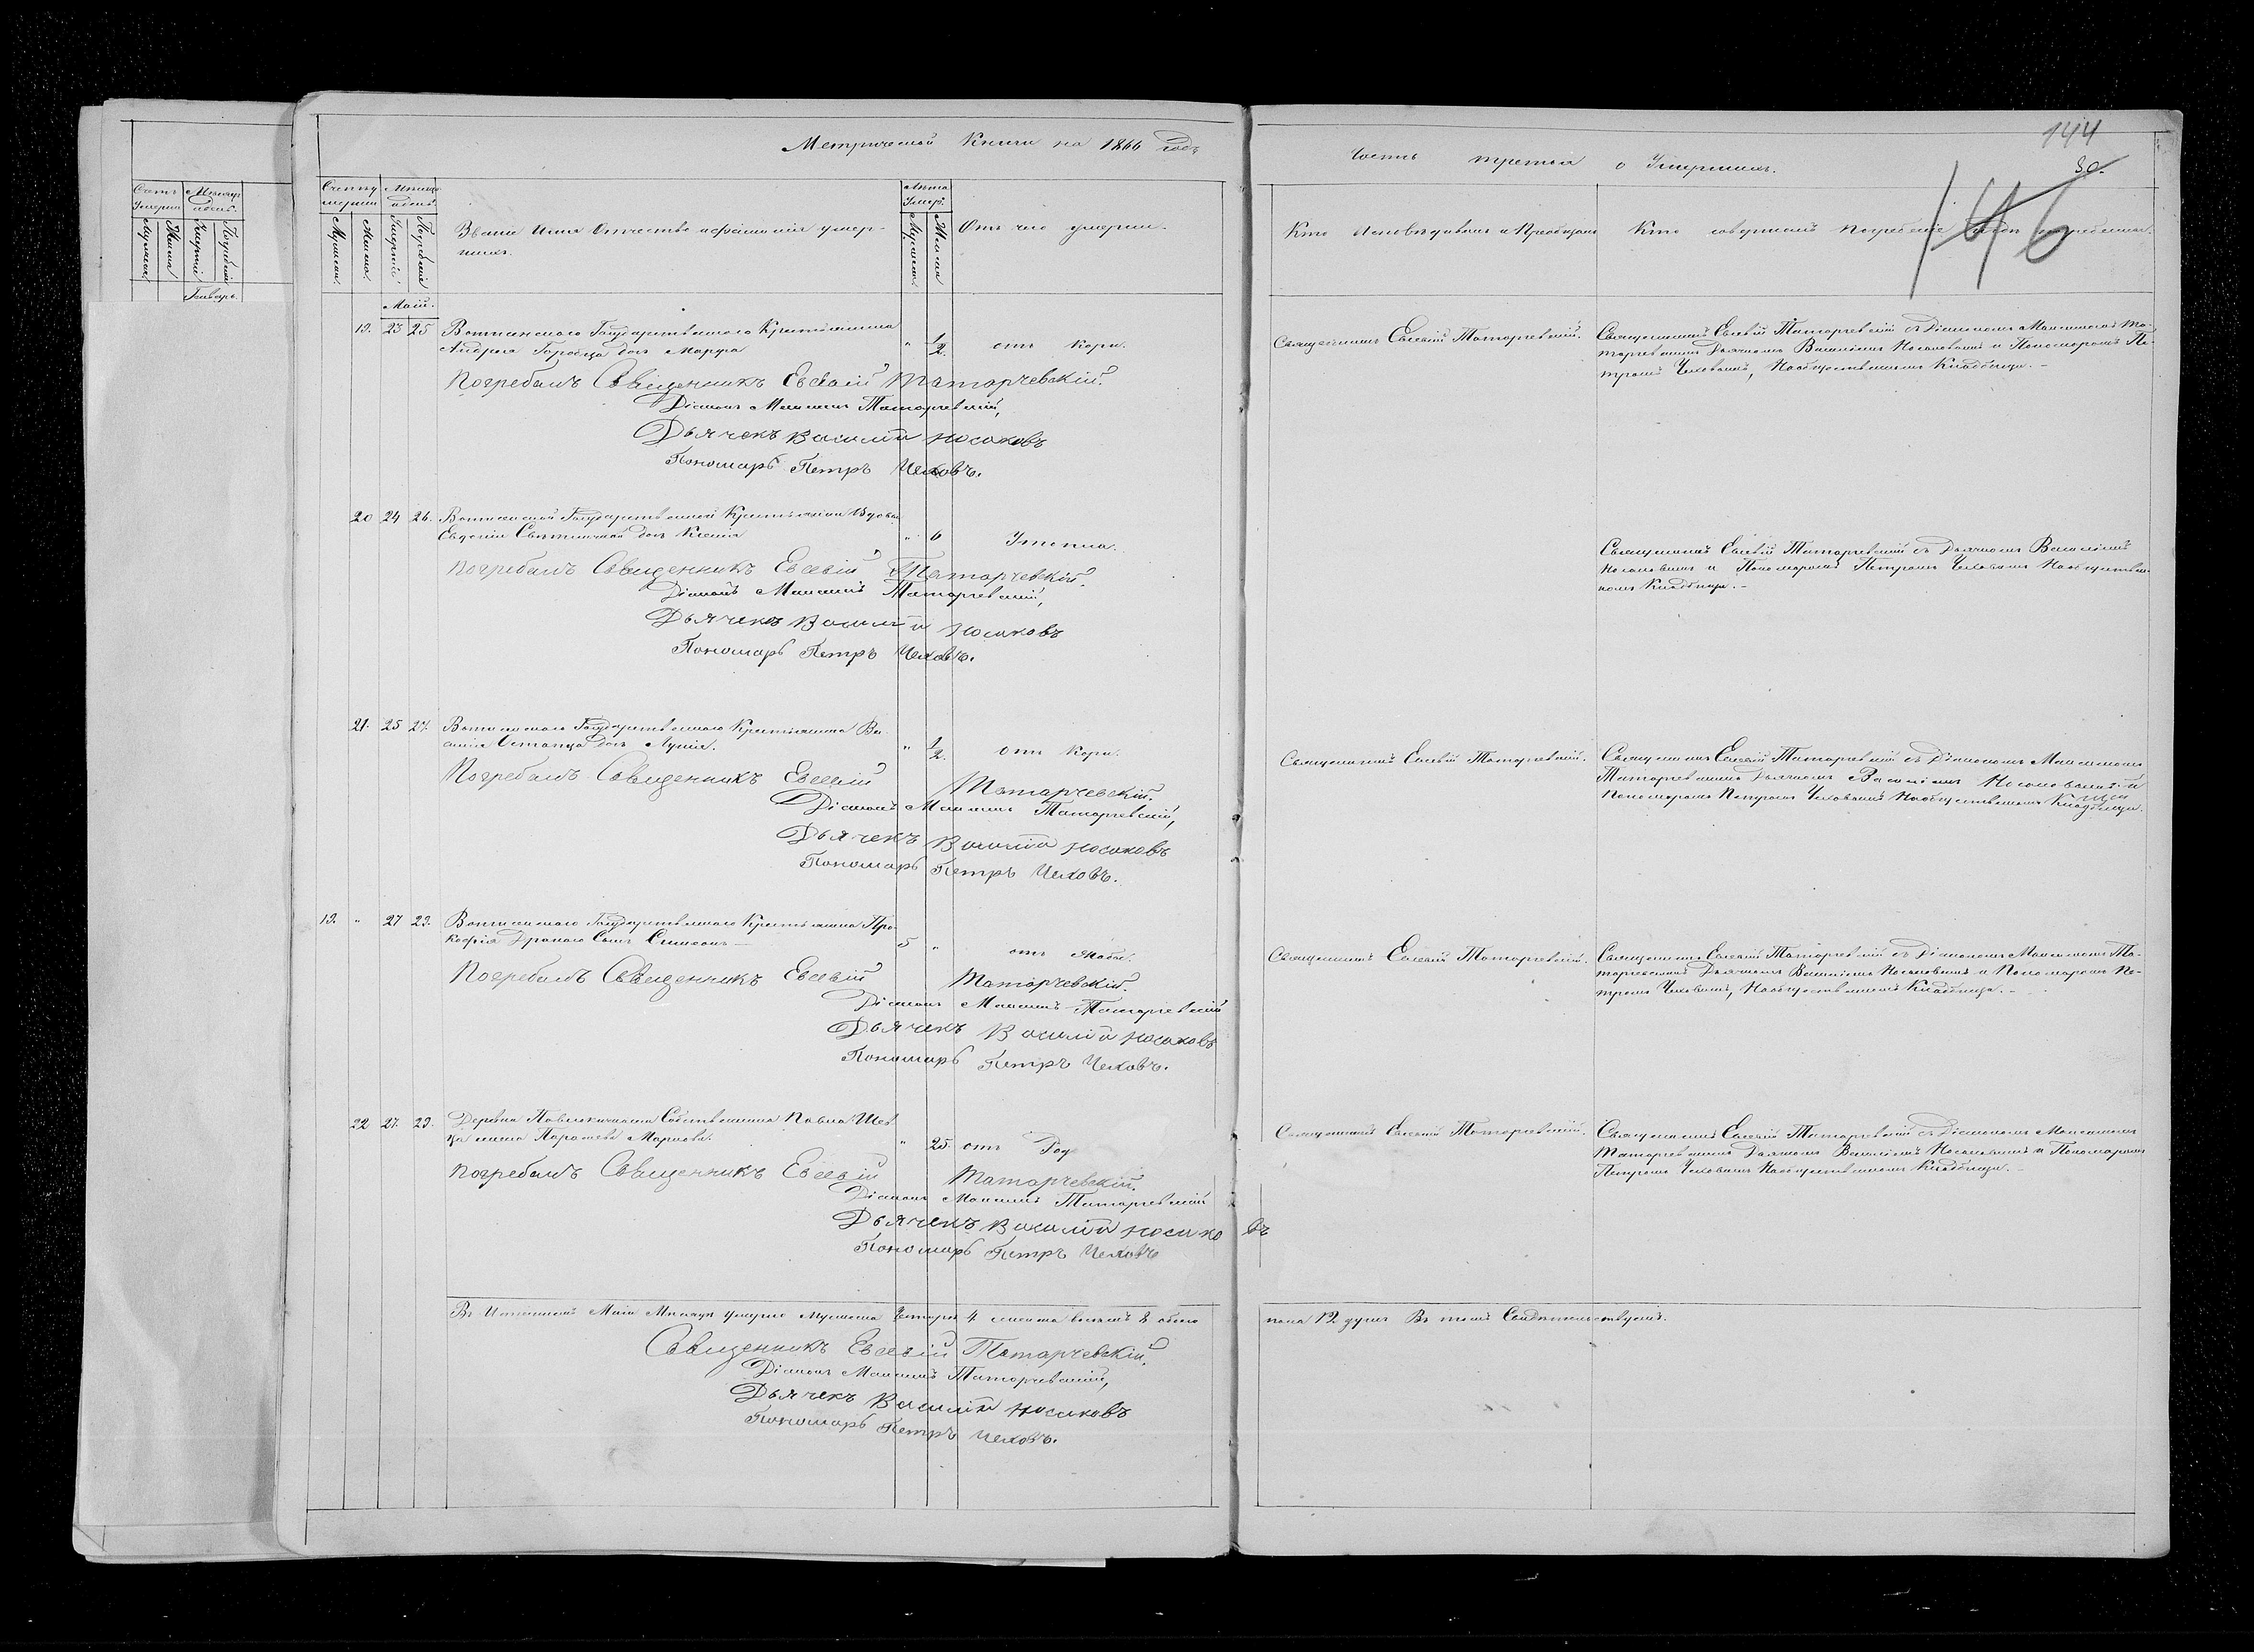 Метрической Книги на 1866 годъ
Часть третья о Умершихъ.
144
30.
146
Счетъ умерши
Мѣсяцъ и день.
Лѣта Умер.
Мужеска.
Женска.
Смерти.
Погребенія
Званіе Имя Отчество и фамилія умер-
шихъ.
Мужеска.
Женска
Отъ чего умерли.
Кто Исповѣдывалъ и Пріобщалъ
Кто совершалъ погребеніе и гдѣ погребены.
Январь.
Май.
19. 23 25 Государственнаго Крестьянина
Андрея дочь Марфа " 1/2. отъ кори.
Погребалъ Священникъ Евсевій Татарчевскій.
Діаконъ Максимъ Татарчевскій,
Дьячекъ Василій Носиковъ
Пономарь Петръ Чеховъ.
Священникъ Евсевій Татарчевскій.
Священникъ Евсевій Татарчевскій съ Діакономъ Максимомъ Та-
тарчевскимъ Дьячкомъ Василіемъ Носиковымъ и Пономаремъ Пе-
тромъ Чеховымъ, Наобщественномъ Кладбищи. -
20 24 26. Государственной Крестьянки Вдовы
Евдокіи дочь Ксенія " 6 Утопла.
Погребалъ Священникъ Евсевій Татарчевскій.
Діаконъ Максимъ Татарчевскій,
Дьячекъ Василій Носиковъ
Пономарь Петръ Чеховъ.
Священникъ Евсевій Татарчевскій съ Дьячкомъ Василіемъ
Носиковымъ и Пономаремъ Петромъ Чеховымъ Наобществен-
номъ Кладбищи. -
21. 25 27. Государственнаго Крестьянина Ва-
силія Остапца дочь Лукія. " 1/2. отъ кори.
Погребалъ Священникъ Евсевій Татарчевскій.
Діаконъ Максимъ Татарчевскій,
Дьячекъ Василій Носиковъ
Пономарь Петръ Чеховъ.
Священникъ Евсевій Татарчевскій.
Священникъ Евсевій Татарчевскій съ Діакономъ Максимомъ
Татарчевскимъ Дьячкомъ Василіемъ Носиковымъ и
Пономаремъ Петромъ Чеховымъ Наобщественномъ Кладбищи.
13. " 27 29. Государственнаго Крестьянина Про-
кофія Сынъ Симеонъ 5 " отъ
Погребалъ Священникъ Евсевій Татарчевскій.
Діаконъ Максимъ Татарчевскій
Дьячекъ Василій Носиковъ
Пономарь Петръ Чеховъ.
Священникъ Евсевій Татарчевскій.
Священникъ Евсевій Татарчевскій съ Діакономъ Максимомъ Та-
тарчевскимъ Дьячкомъ Василіемъ Носиковымъ и Пономаремъ Пе-
тромъ Чеховымъ, Наобщественномъ Кладбищи. -
22 27. 29. Деревни Собственника Павла Шев-
ца жена Параскева Маркова. " 25. отъ Род
Погребалъ Священникъ Евсевій Татарчевскій.
Діаконъ Максимъ Татарчевскій
Дьячекъ Василій Носиковъ
Пономарь Петръ Чеховъ
Священникъ Евсевій Татарчевскій.
Священникъ Евсевій Татарчевскій съ Діакономъ Максимомъ
Татарчевскимъ Дьячкомъ Василіемъ Носиковымъ и Пономаремъ
Петромъ Чеховымъ Наобщественномъ Кладбищи. -
Въ Маіи Мѣсяцѣ умерло мужеска Четыри 4 женска восемь 8 обоего
пола 12 душъ Въ томъ Свидѣтельствуемъ.
Священникъ Евсевій Татарчевскій.
Діаконъ Максимъ Татарчевскій,
Дьячекъ Василій Носиковъ
Пономарь Петръ Чеховъ.